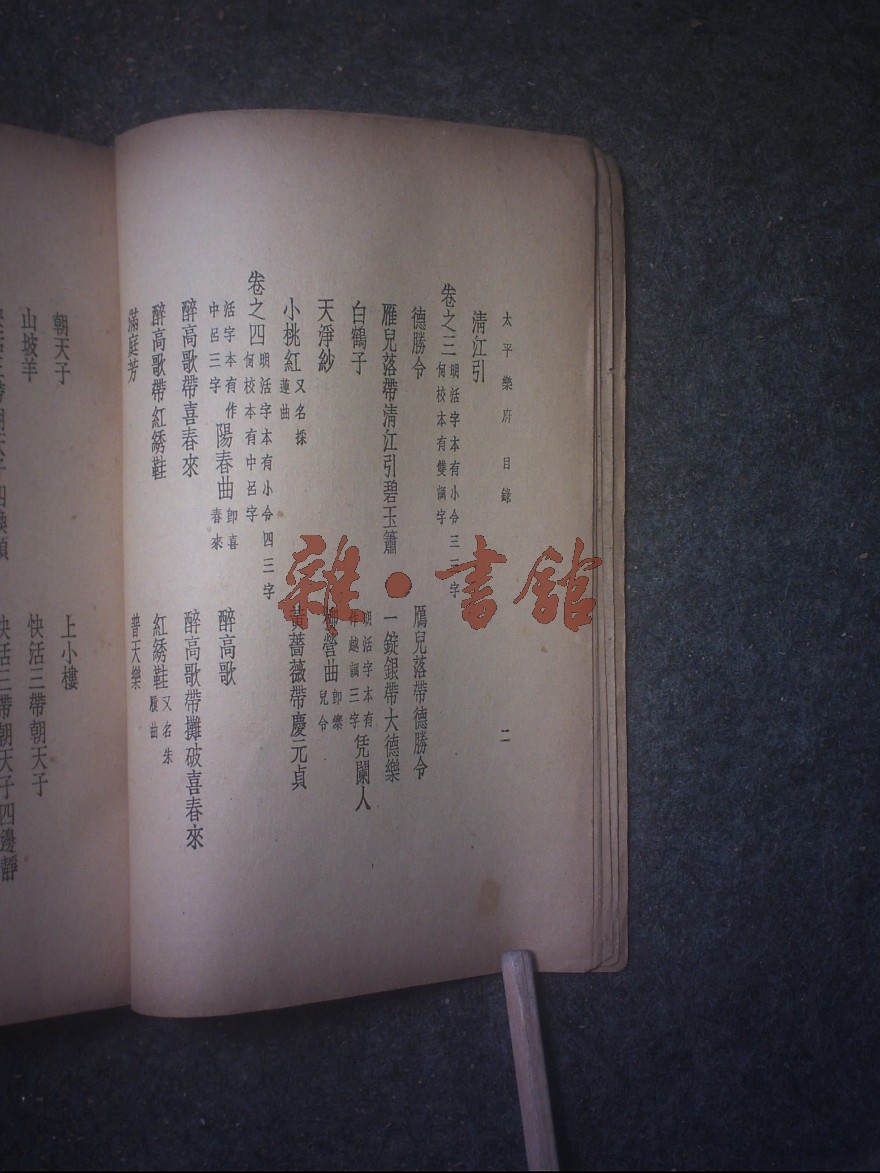 太平樂府 目錄 二
清江引
卷之三 明活字本有小令三三字 何校本有雙調字
德勝令 鴈兒落帶德勝令
雁兒落帶清江引碧玉簫 一錠銀帶大德樂
白鶴子 明活字本有 作越調三字 凭闌人
天淨紗 柳營曲 卽樂 兒令
小桃紅 又名採 蓮曲 黃薔薇帶慶元貞
卷之四 明活字本有小令四三字 何校本有中呂字
活字本有作 中呂三字 陽春曲 卽喜 春來 醉高歌
醉高歌帶喜春來 醉高歌帶攤破喜春來
醉高歌帶紅綉鞋 紅綉鞋 又名朱 履曲
滿庭芳 普天樂
朝天子 上小樓
山坡羊 快活三帶朝天子
快活三帶朝天子四換頭 快活三帶朝天子四邊靜
雜·書館